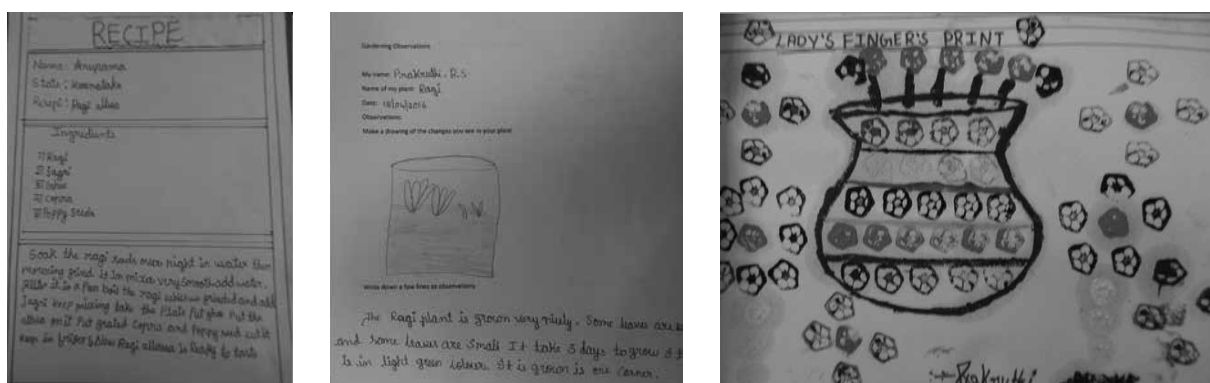 RECIPE
Name: Anupama
State: Karnataka
Recipi: Ragi
Ingridients
1) Ragi
2) Jagri
3) Ghee
4) Copra
5) Poppy Seeds
Soak the ragi seeds over night in water then
morning grind it in mixer very smooth add water.
filter it in a pan boil the ragi water grinded and add
Jagri keep mixing take the Plate Put ghee Put the
on it Put grated Copra and Poppy seed cut it
keep in Ragi is Ready to taste
Gardening Observations
My name: Prakruthi. R.S
Name of my plant: Ragi
Date: 18/04/2016
Observations:
Make a drawing of the changes you see in your plant
Write down a few lines as observations
The Ragi plant is grown very nicely. Some leaves are
and some leaves are small It take 3 days to grow
is in light green colour. It is grown is one corner.
LADY'S FINGER'S PRINT
Prakruthi